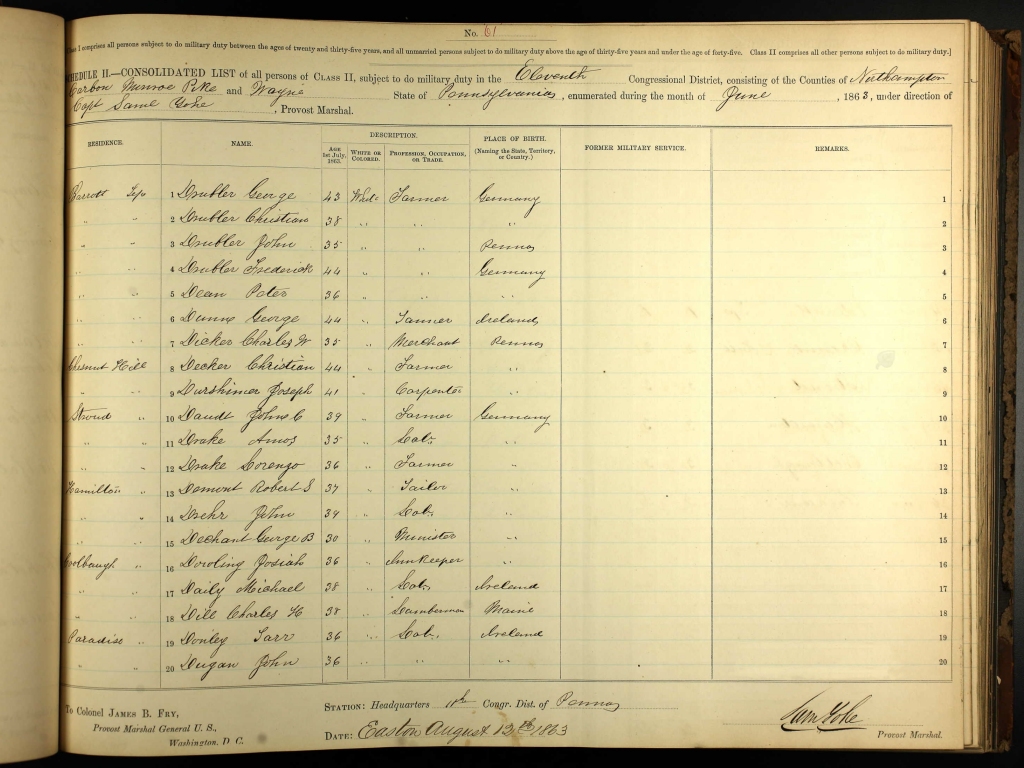 No. 61
Class I comprises all persons subject to do military duty between the ages of twenty and thirty-five years, and all unmarried persons subject to do military duty above the age of thirty-five years and under the age of forty-five. Class II comprises all other persons subject to do military duty.]
SCHEDULE II.—CONSOLIDATED LIST of all persons of CLASS II, subject to do military duty in the Eleventh Congressional District, consisting of the Counties of Northampton
Carbon Munroe Pike and Wayne State of Pennsylvania, enumerated during the month of June, 1863, under direction of
Capt Saml Yohe, Provost Marshal.
RESIDENCE. NAME. DESCRIPTION. PLACE OF BIRTH. FORMER MILITARY SERVICE. REMARKS.
AGE 1st July, 1863. WHITE OR COLORED. PROFESSION, OCCUPATION, OR TRADE. (Naming the State, Territory, or Country.)
Barrott Tsp 1 Drubler George 43 White Farmer Germany 1
" " 2 Drubler Christian 38 " " " 2
" " 3 Drubler John 35 " " Penna 3
" " 4 Drubler Frederick 44 " " Germany 4
" " 5 Dean Peter 36 " " " 5
" " 6 Dunne George 44 " Tanner Ireland 6
" " 7 Dicker Charles W 35 " Merchant Penna 7
Chesnut Hill 8 Decker Christian 44 " Farmer " 8
" " 9 Durshimer Joseph 41 " Carpenter " 9
Stroud " 10 Daudt John C 39 " Farmer Germany 10
" " 11 Drake Amos 35 " Lab. " 11
" " 12 Drake Lorenzo 36 " Farmer " 12
Hamilton " 13 Demont Robert S 37 " Tailor " 13
" " 14 Drehr John 39 " Lab. " 14
" " 15 Dechant George B 30 " Minister " 15
Coolbaugh " 16 Dowling Josiah 36 " Innkeeper " 16
" " 17 Daily Michael 38 " Lab. Ireland 17
" " 18 Dill Charles H 38 " Lumberman Maine 18
Paradise " 19 Donley Tarr 36 " Lab. Ireland 19
" " 20 Dugan John 36 " " " 20
To Colonel JAMES B. FRY,
Provost Marshal General U. S.,
Washington, D. C.
STATION: Headquarters 11th Congr. Dist. of Penna
DATE: Easton August 12th 1863
Sam Yohe
Provost Marshal.